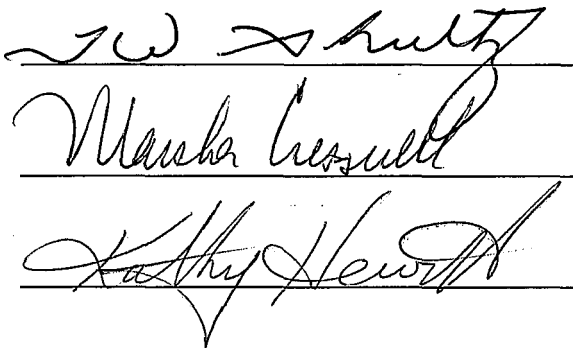 J W Shultz
Marsha Creswell
Kathy Hewitt